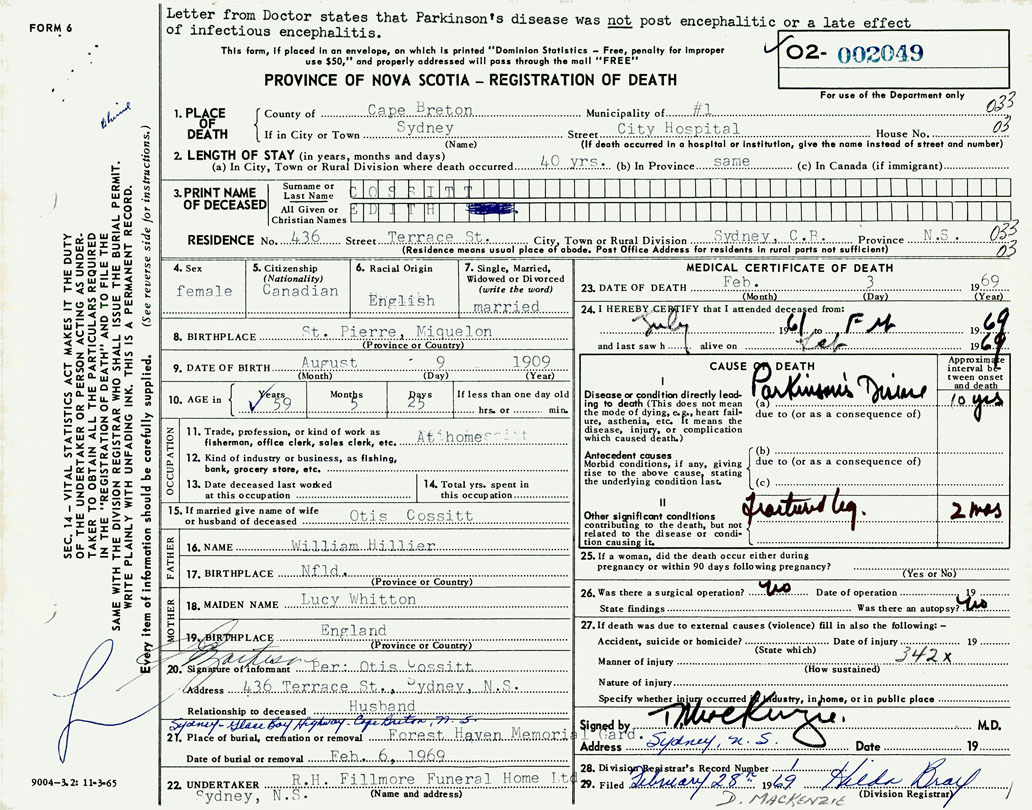 Letter from Doctor states that Parkinson's disease was not post encephalitic or a late effect
of infectious encephalitis.
FORM 6
This form, if placed in an envelope, on which is printed "Dominion Statistics – Free, penalty for improper
use $50," and properly addressed will pass through the mail "FREE"
02- 002049
For use of the Department only
PROVINCE OF NOVA SCOTIA – REGISTRATION OF DEATH
033
03
1. PLACE OF DEATH
County of Cape Breton Municipality of #1
If in City or Town Sydney Street City Hospital House No.
(Name) (If death occurred in a hospital or institution, give the name instead of street and number)
2. LENGTH OF STAY (in years, months and days)
(a) In City, Town or Rural Division where death occurred 40 yrs. (b) In Province same (c) In Canada (if immigrant)
3. PRINT NAME OF DECEASED
Surname or Last Name COSSITT
All Given or Christian Names EDITH
RESIDENCE No. 436 Street Terrace St. City, Town or Rural Division Sydney, C.B. Province N.S.
(Residence means usual place of abode. Post Office Address for residents in rural parts not sufficient)
033
03
4. Sex
female
5. Citizenship
(Nationality)
Canadian
6. Racial Origin
English
7. Single, Married,
Widowed or Divorced
(write the word)
married
8. BIRTHPLACE St. Pierre, Miquelon
(Province or Country)
9. DATE OF BIRTH August 9 1909
(Month) (Day) (Year)
10. AGE in
Years 59
Months 5
Days 25
If less than one day old
hrs. or min.
OCCUPATION
11. Trade, profession, or kind of work as
fisherman, office clerk, sales clerk, etc. At home
12. Kind of industry or business, as fishing,
bank, grocery store, etc.
13. Date deceased last worked
at this occupation
14. Total yrs. spent in
this occupation
15. If married give name of wife
or husband of deceased Otis Cossitt
FATHER
16. NAME William Hillier
17. BIRTHPLACE Nfld.
(Province or Country)
MOTHER
18. MAIDEN NAME Lucy Whitton
19. BIRTHPLACE England
(Province or Country)
20. Signature of informant Per: Otis Cossitt
Address 436 Terrace St., Sydney, N.S.
Relationship to deceased Husband
Sydney-Glace Bay Highway-Cape Breton, N.S.
21. Place of burial, cremation or removal Forest Haven Memorial Gard.
Date of burial or removal Feb. 6, 1969
22. UNDERTAKER R.H. Fillmore Funeral Home Ltd
Sydney, N.S. (Name and address)
MEDICAL CERTIFICATE OF DEATH
23. DATE OF DEATH Feb. 3 1969
(Month) (Day) (Year)
24. I HEREBY CERTIFY that I attended deceased from:
July 1961 to Feb 1969
and last saw h alive on Feb 1969
CAUSE OF DEATH
Approximate
interval be-
tween onset
and death
I
Disease or condition directly lead-
ing to death (This does not mean
the mode of dying, e.g., heart fail-
ure, asthenia, etc. It means the
disease, injury, or complication
which caused death.)
(a) Parkinson's Disease
10 yrs
due to (or as a consequence of)
Antecedent causes
Morbid conditions, if any, giving
rise to the above cause, stating
the underlying condition last.
(b)
due to (or as a consequence of)
(c)
II
Other significant conditions
contributing to the death, but not
related to the disease or condi-
tion causing it.
fractured leg.
2 mos
25. If a woman, did the death occur either during
pregnancy or within 90 days following pregnancy?
(Yes or No)
26. Was there a surgical operation? No Date of operation 19
State findings Was there an autopsy? No
27. If death was due to external causes (violence) fill in also the following: –
Accident, suicide or homicide? Date of injury 19
(State which)
342x
Manner of injury
(How sustained)
Nature of injury
Specify whether injury occurred in industry, in home, or in public place
Signed by D MacKenzie. M.D.
Address Sydney, N.S. Date 19
28. Division Registrar's Record Number 1
29. Filed February 28th 1969 Hilda Bray
(Division Registrar)
D. MACKENZIE
SEC. 14 – VITAL STATISTICS ACT MAKES IT THE DUTY
OF THE UNDERTAKER OR PERSON ACTING AS UNDER-
TAKER TO OBTAIN ALL THE PARTICULARS REQUIRED
IN THE "REGISTRATION OF DEATH" AND TO FILE THE
SAME WITH THE DIVISION REGISTRAR WHO SHALL ISSUE THE BURIAL PERMIT.
WRITE PLAINLY WITH UNFADING INK. THIS IS A PERMANENT RECORD.
Every item of information should be carefully supplied. (See reverse side for instructions.)
9004-3.2: 11-3-65